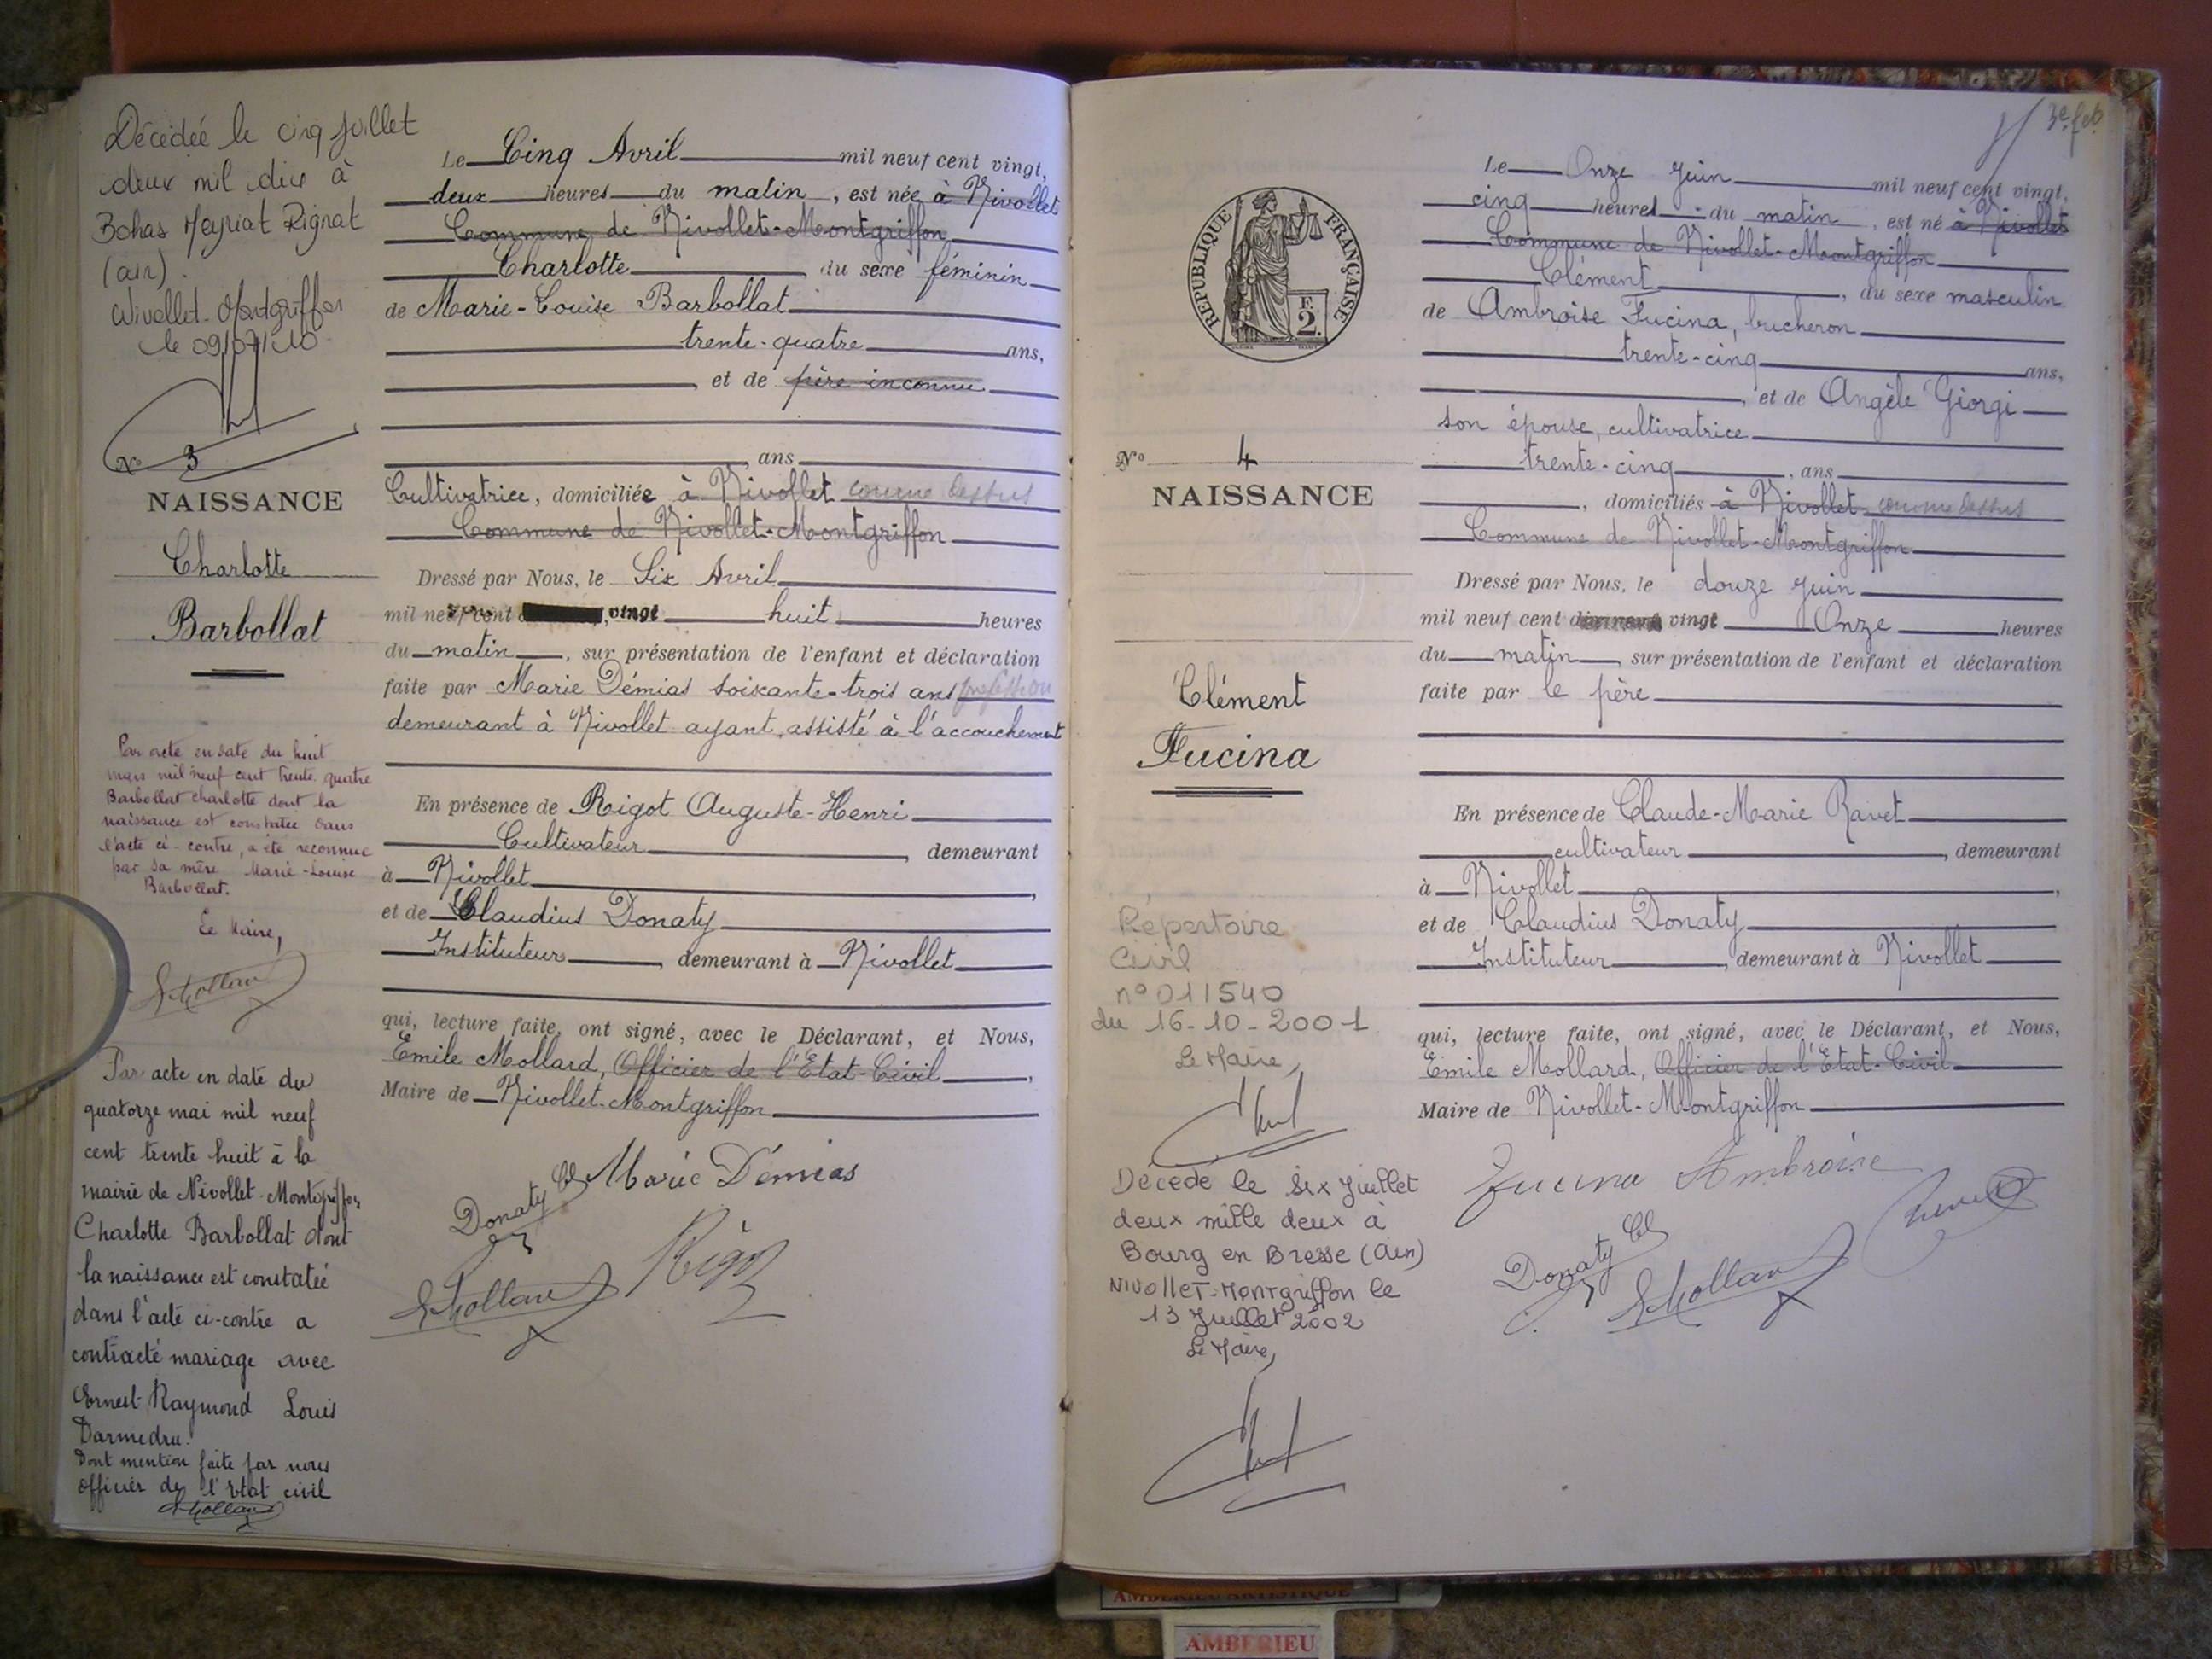 Décédée le cinq juillet
deux mil dix à
Bohas Meyriat Rignat
(ain).
Nivollet-Montgriffon
le 09/07/10
N° 3
NAISSANCE
Charlotte
Barbollat
Par acte en date du huit
mars mil neuf cent trente quatre
Barbollat Charlotte dont la
naissance est constatée dans
l'acte ci-contre, a été reconnue
par sa mère Marie-Louise
Barbollat.
Le Maire,
E Mollard
Par acte en date du
quatorze mai mil neuf
cent trente huit à la
mairie de Nivollet-Montgriffon
Charlotte Barbollat dont
la naissance est constatée
dans l'acte ci-contre a
contracté mariage avec
Ernest Raymond Louis
Darmedru.
Dont mention faite par nous
officier de l'état civil
E Mollard
Le Cinq Avril mil neuf cent vingt,
deux heures du matin, est née à Nivollet
Commune de Nivollet-Montgriffon
Charlotte, du sexe féminin
de Marie-Louise Barbollat
trente-quatre ans,
, et de père inconnu
, ans
Cultivatrice, domiciliée à Nivollet comme dessus
Commune de Nivollet-Montgriffon
Dressé par Nous, le Six Avril
mil neuf cent vingt huit heures
du matin, sur présentation de l'enfant et déclaration
faite par Marie Démias soixante-trois ans profession
demeurant à Nivollet ayant assisté à l'accouchement
En présence de Rigot Auguste-Henri
Cultivateur, demeurant
à Nivollet,
et de Claudius Donaty
Instituteur, demeurant à Nivollet
qui, lecture faite, ont signé, avec le Déclarant, et Nous,
Emile Mollard, Officier de l'Etat-Civil,
Maire de Nivollet-Montgriffon
Marie Démias
Donaty Cl
Rigot
E Mollard
3e feb
RÉPUBLIQUE FRANÇAISE
F.
2.
N° 4
NAISSANCE
Clément
Fucina
Répertoire
Civil
n° 011540
du 16-10-2001
Le Maire,
Décédé le six Juillet
deux mille deux à
Bourg en Bresse (Ain)
NIVOLLET-Montgriffon le
13 Juillet 2002
Le Maire,
Le Onze Juin mil neuf cent vingt,
cinq heures du matin, est né à Nivollet
Commune de Nivollet-Montgriffon
Clément, du sexe masculin
de Ambroise Fucina, bucheron
trente-cinq ans,
, et de Angèle Giorgi
son épouse, cultivatrice
trente-cinq, ans
, domiciliés à Nivollet comme dessus
Commune de Nivollet-Montgriffon
Dressé par Nous, le douze Juin
mil neuf cent dix neuf vingt Onze heures
du matin, sur présentation de l'enfant et déclaration
faite par le père
En présence de Claude-Marie Ravet
cultivateur, demeurant
à Nivollet,
et de Claudius Donaty
Instituteur, demeurant à Nivollet
qui, lecture faite, ont signé, avec le Déclarant, et Nous,
Emile Mollard, Officier de l'Etat-Civil
Maire de Nivollet-Montgriffon
Fucina Ambroise
Donaty Cl
E Mollard
AMBERIEU ARTISTIQUE
AMBERIEU